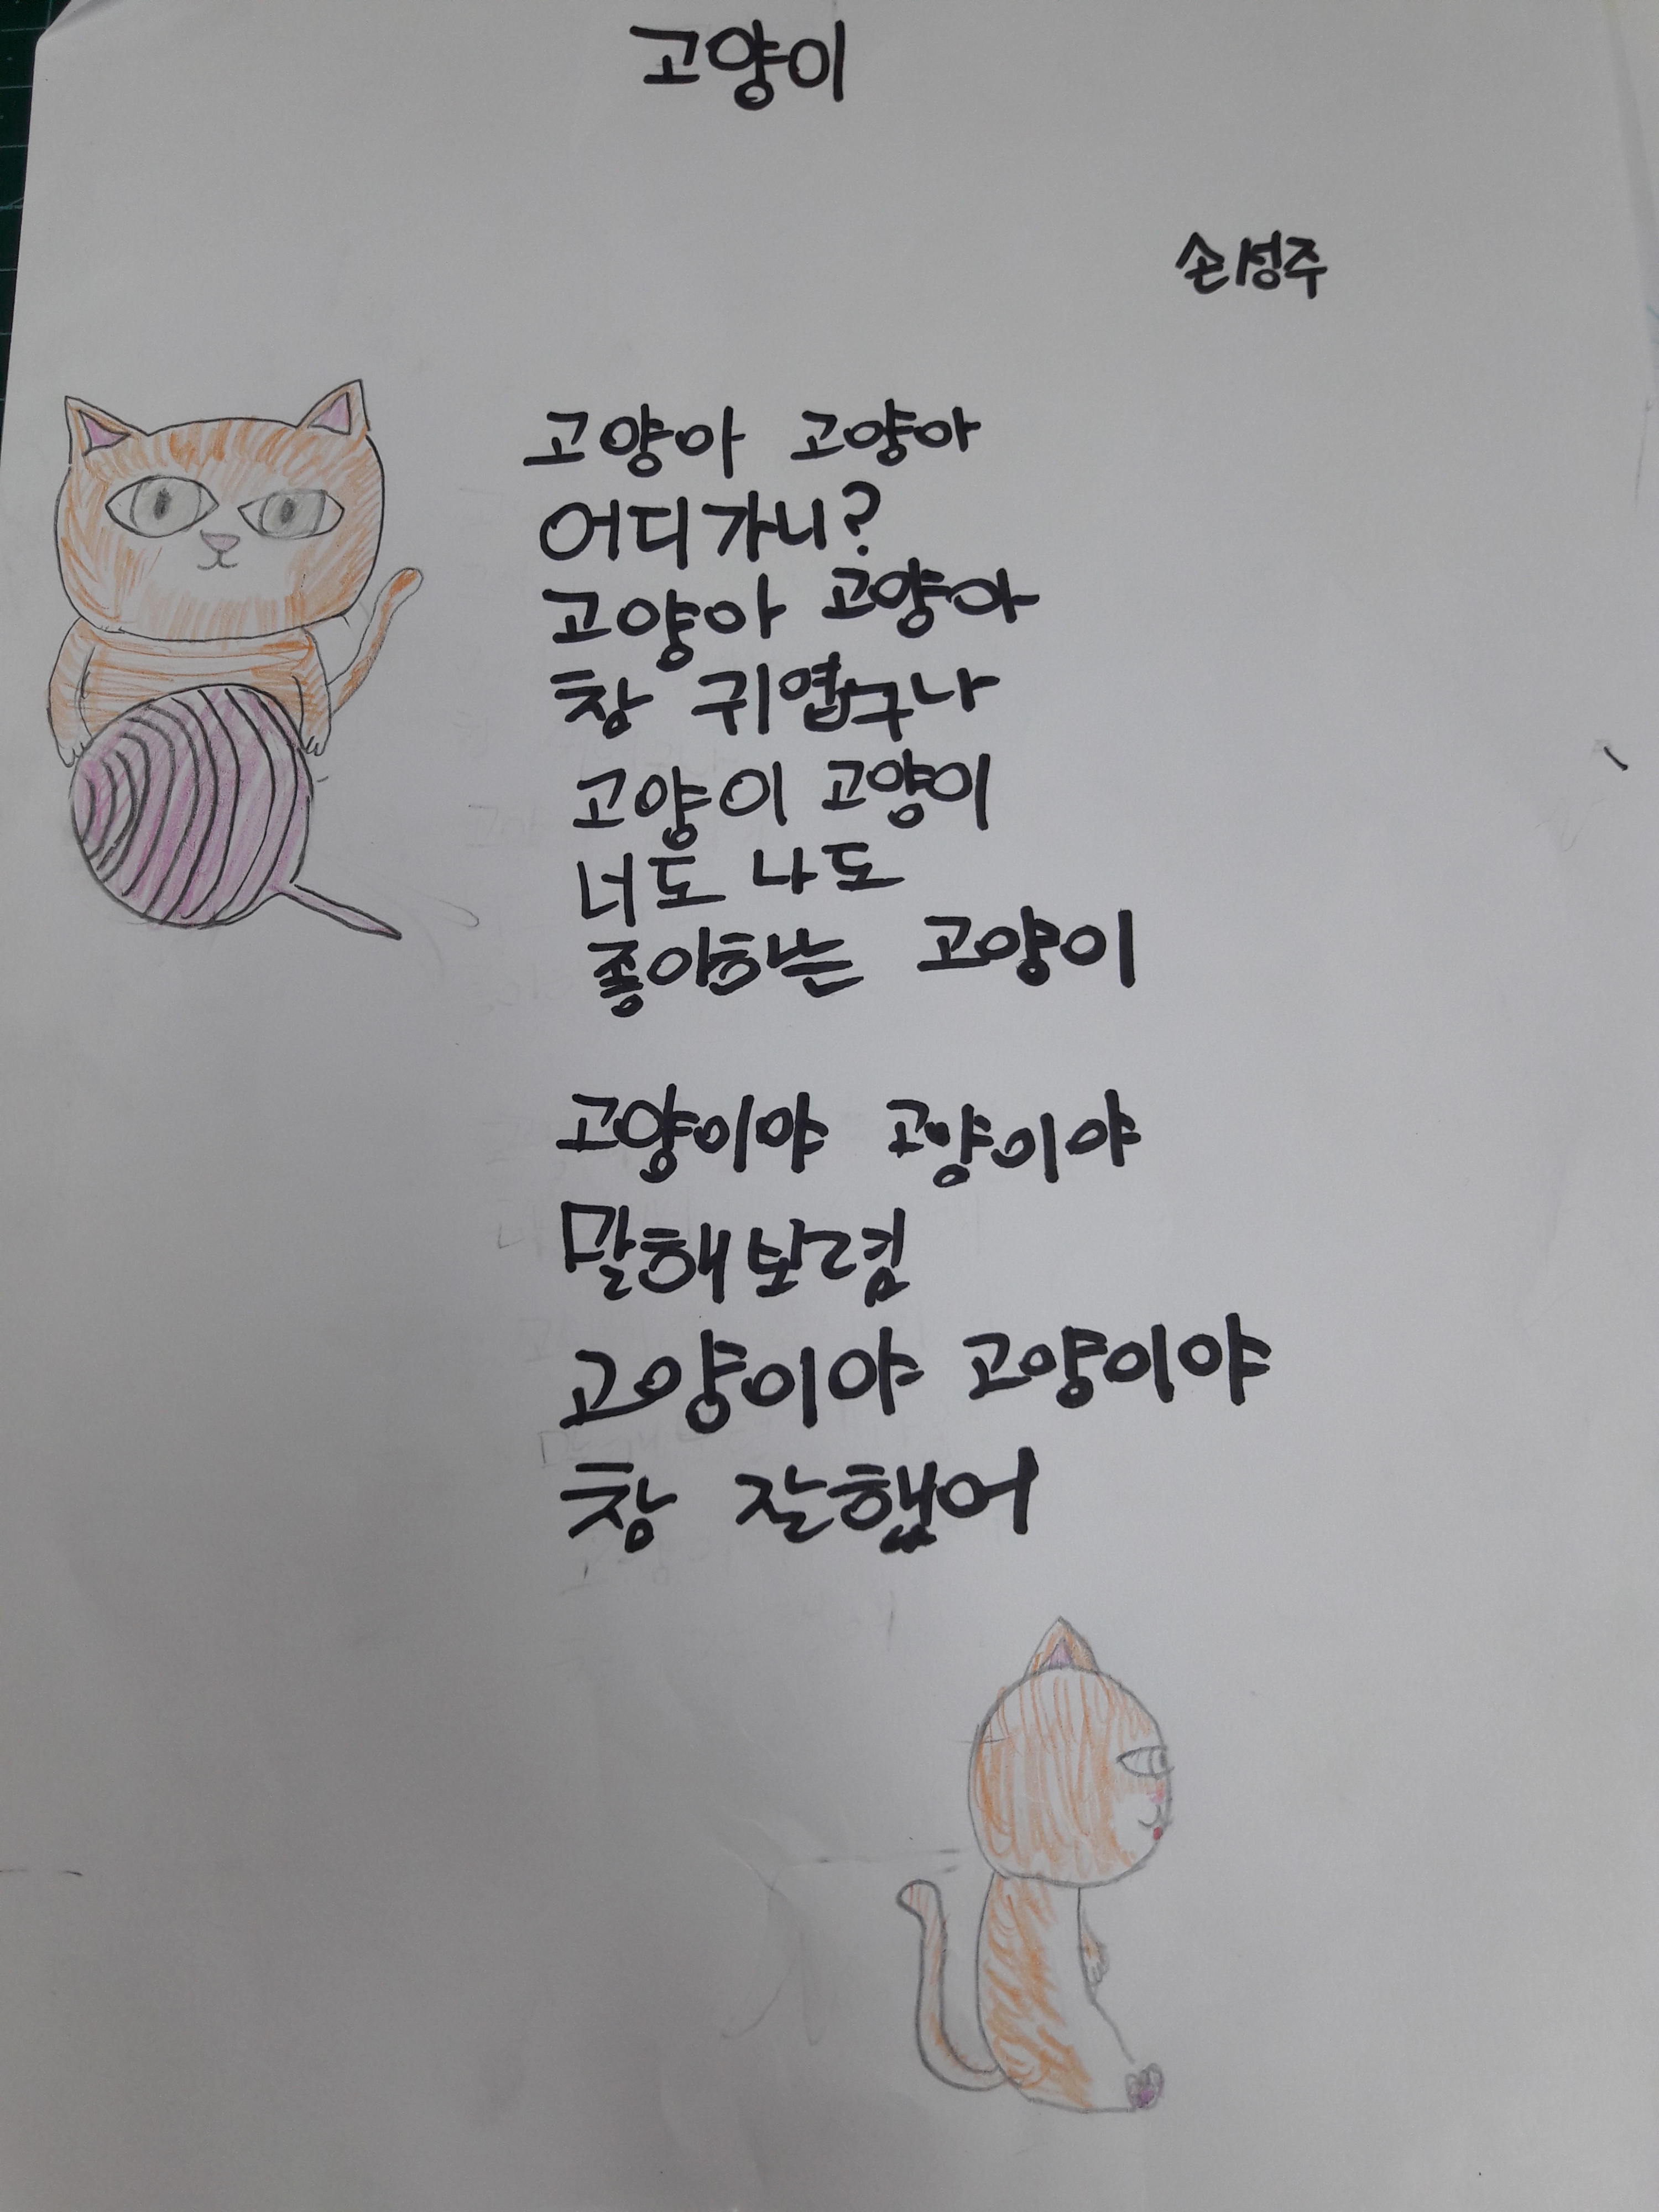 고양이
손성주
고양아 고양아
어디가니?
고양아 고양아
참 귀엽구나
고양이 고양이
너도 나도
좋아하는 고양이
고양이야 고양이야
말해보렴
고양이야 고양이야
참 잘했어